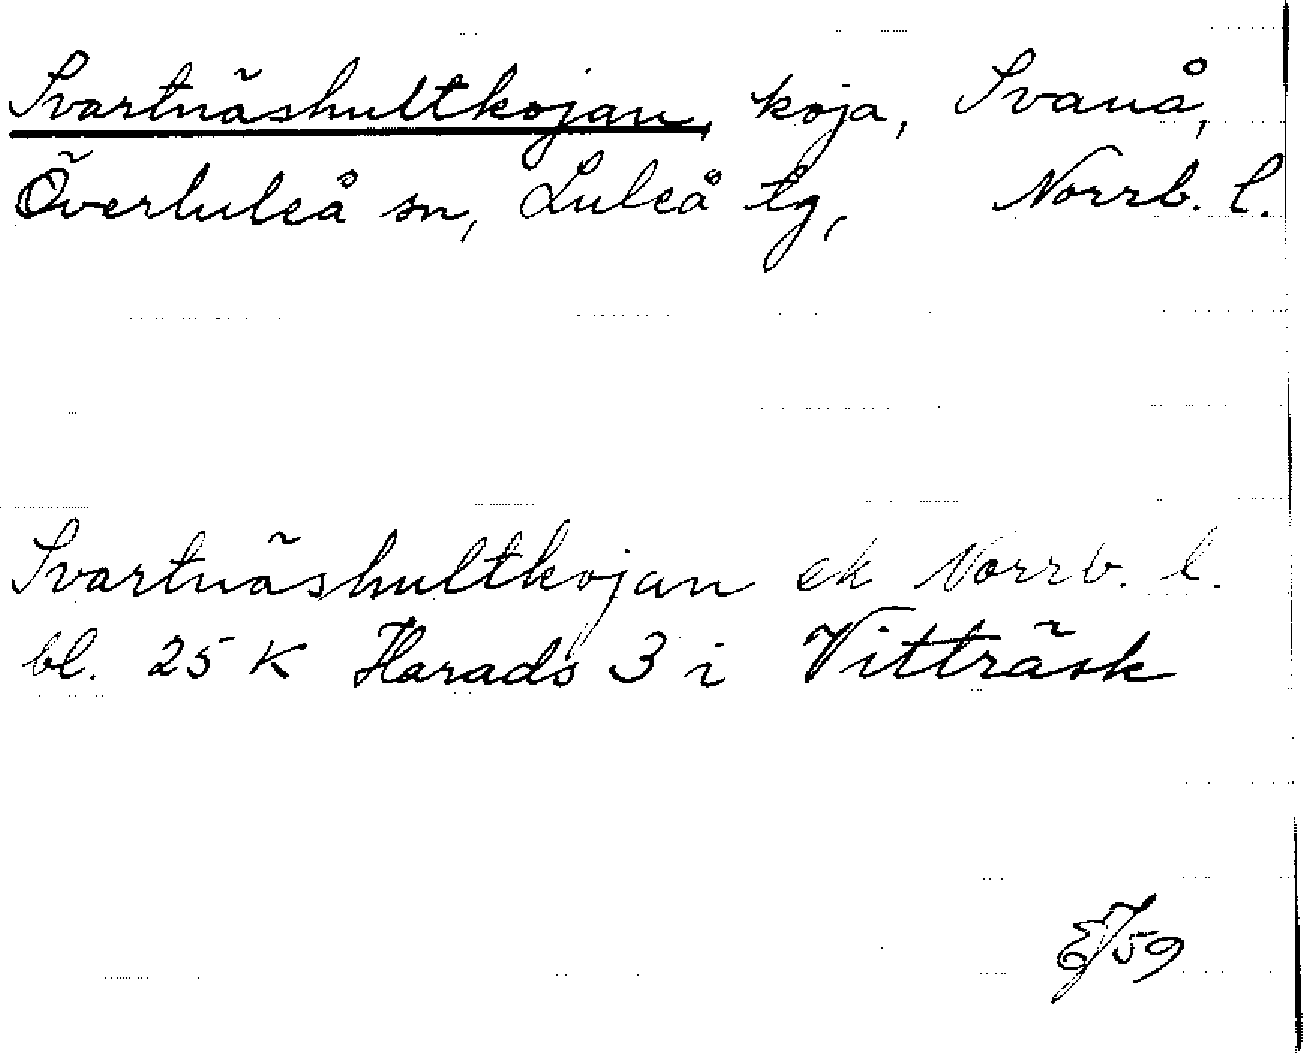 Svartnäshultkojan, koja, Svanå,
Överluleå sn, Luleå tg, Norrb. l.
Svartnäshultkojan ek Norrb. l.
bl. 25 K Harads 3 i Vitträsk
59